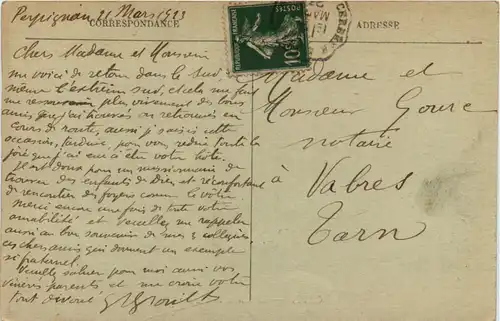 Perpignan 21 Mars 1923
CORRESPONDANCE
ADRESSE
POSTES
10
CERBÈRE
Chers Madame et Monsieur
me voici de retour dans le sud,
même l'extrême sud, et cela me fait
me plus vivement des bons
amis que j'ai trouvés ou retrouvés en
cours de route, aussi je saisis cette
occasion, tardive, pour vous redire toute la
joie que j'ai eue à être votre hôte.
Il est doux pour un missionnaire de
trouver des enfants de Dieu et réconfortant
de rencontrer des foyers comme le vôtre
Merci encore une fois de toute votre
amabilité et veuillez me rappeler
aussi au bon souvenir de
ces chers amis qui donnent un exemple
si fraternel.
Veuillez saluer pour moi aussi vos
parents et me croire votre
tout dévoué
Madame et
Monsieur Goure
notaire
à Vabres
Tarn